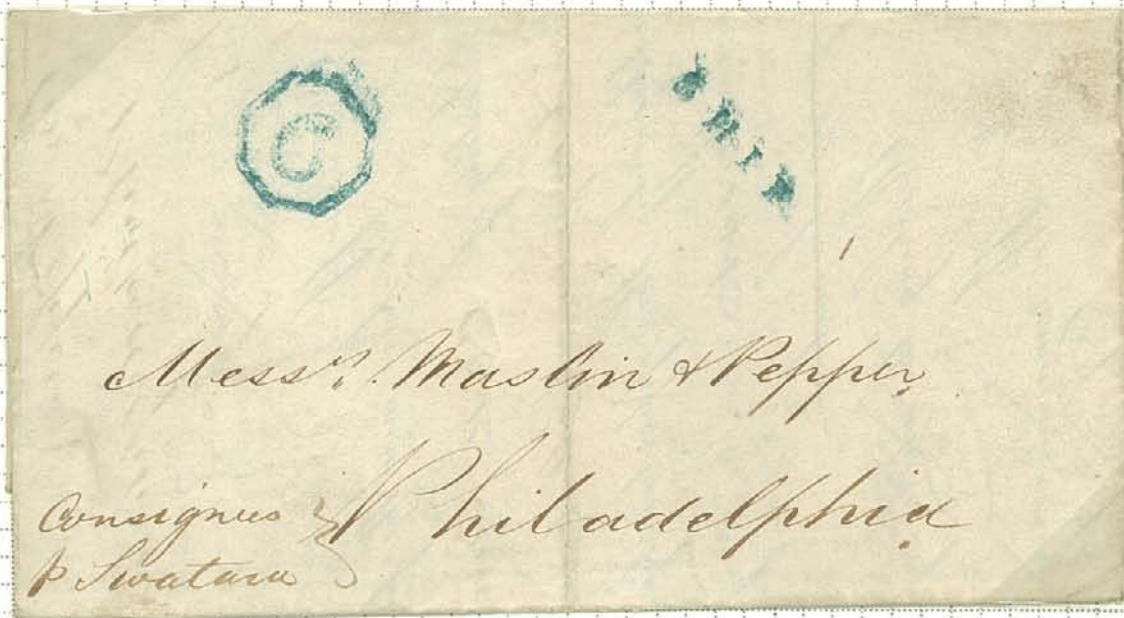 6
SHIP
Messrs. Maslin & Pepper,
Philadelphia
Consignees
p Swatara